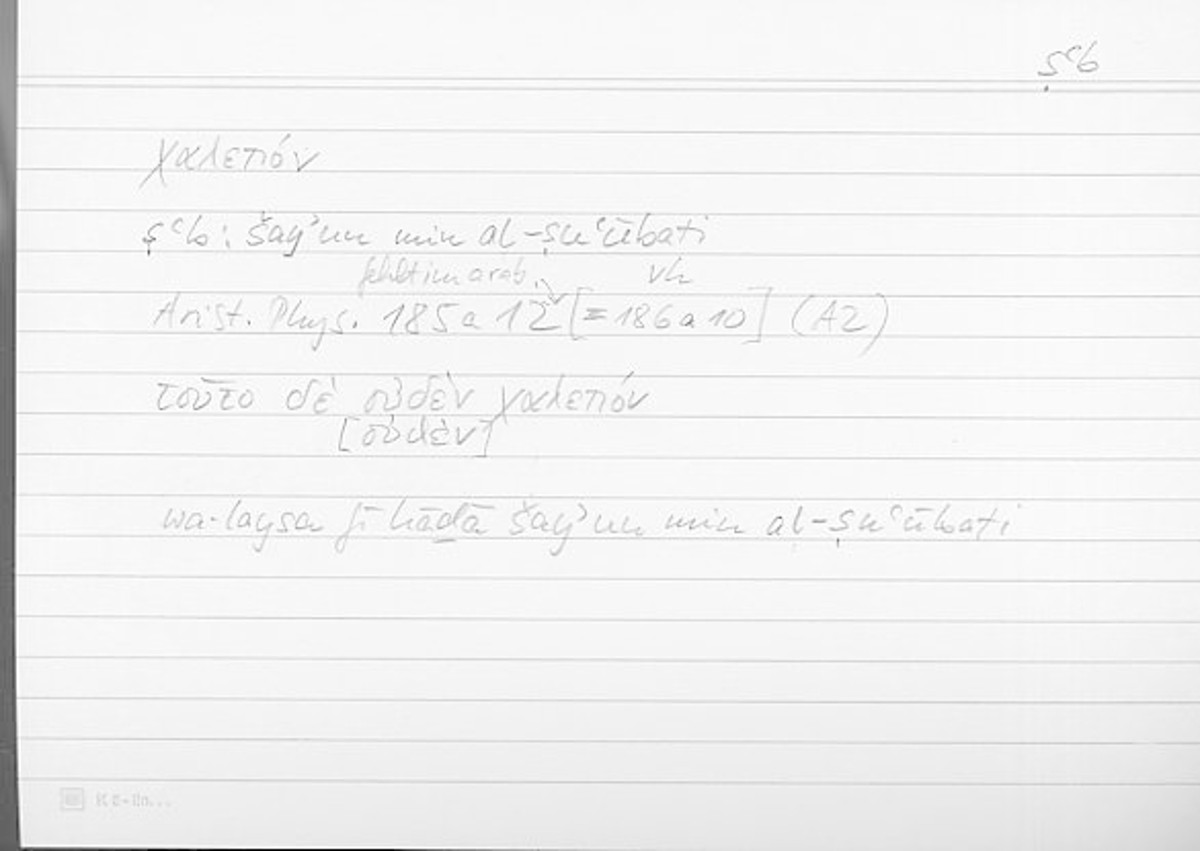 ṣʿb
χαλεπόν
ṣʿb: šayʾun min al-ṣuʿūbati
fehlt im arab. vh
Arist. Phys. 185a12 [= 186a10] (A2)
τοῦτο δὲ οὐδὲν χαλεπόν
[οὐδὲν]
wa-laysa fī hāḏā šayʾun min al-ṣuʿūbati